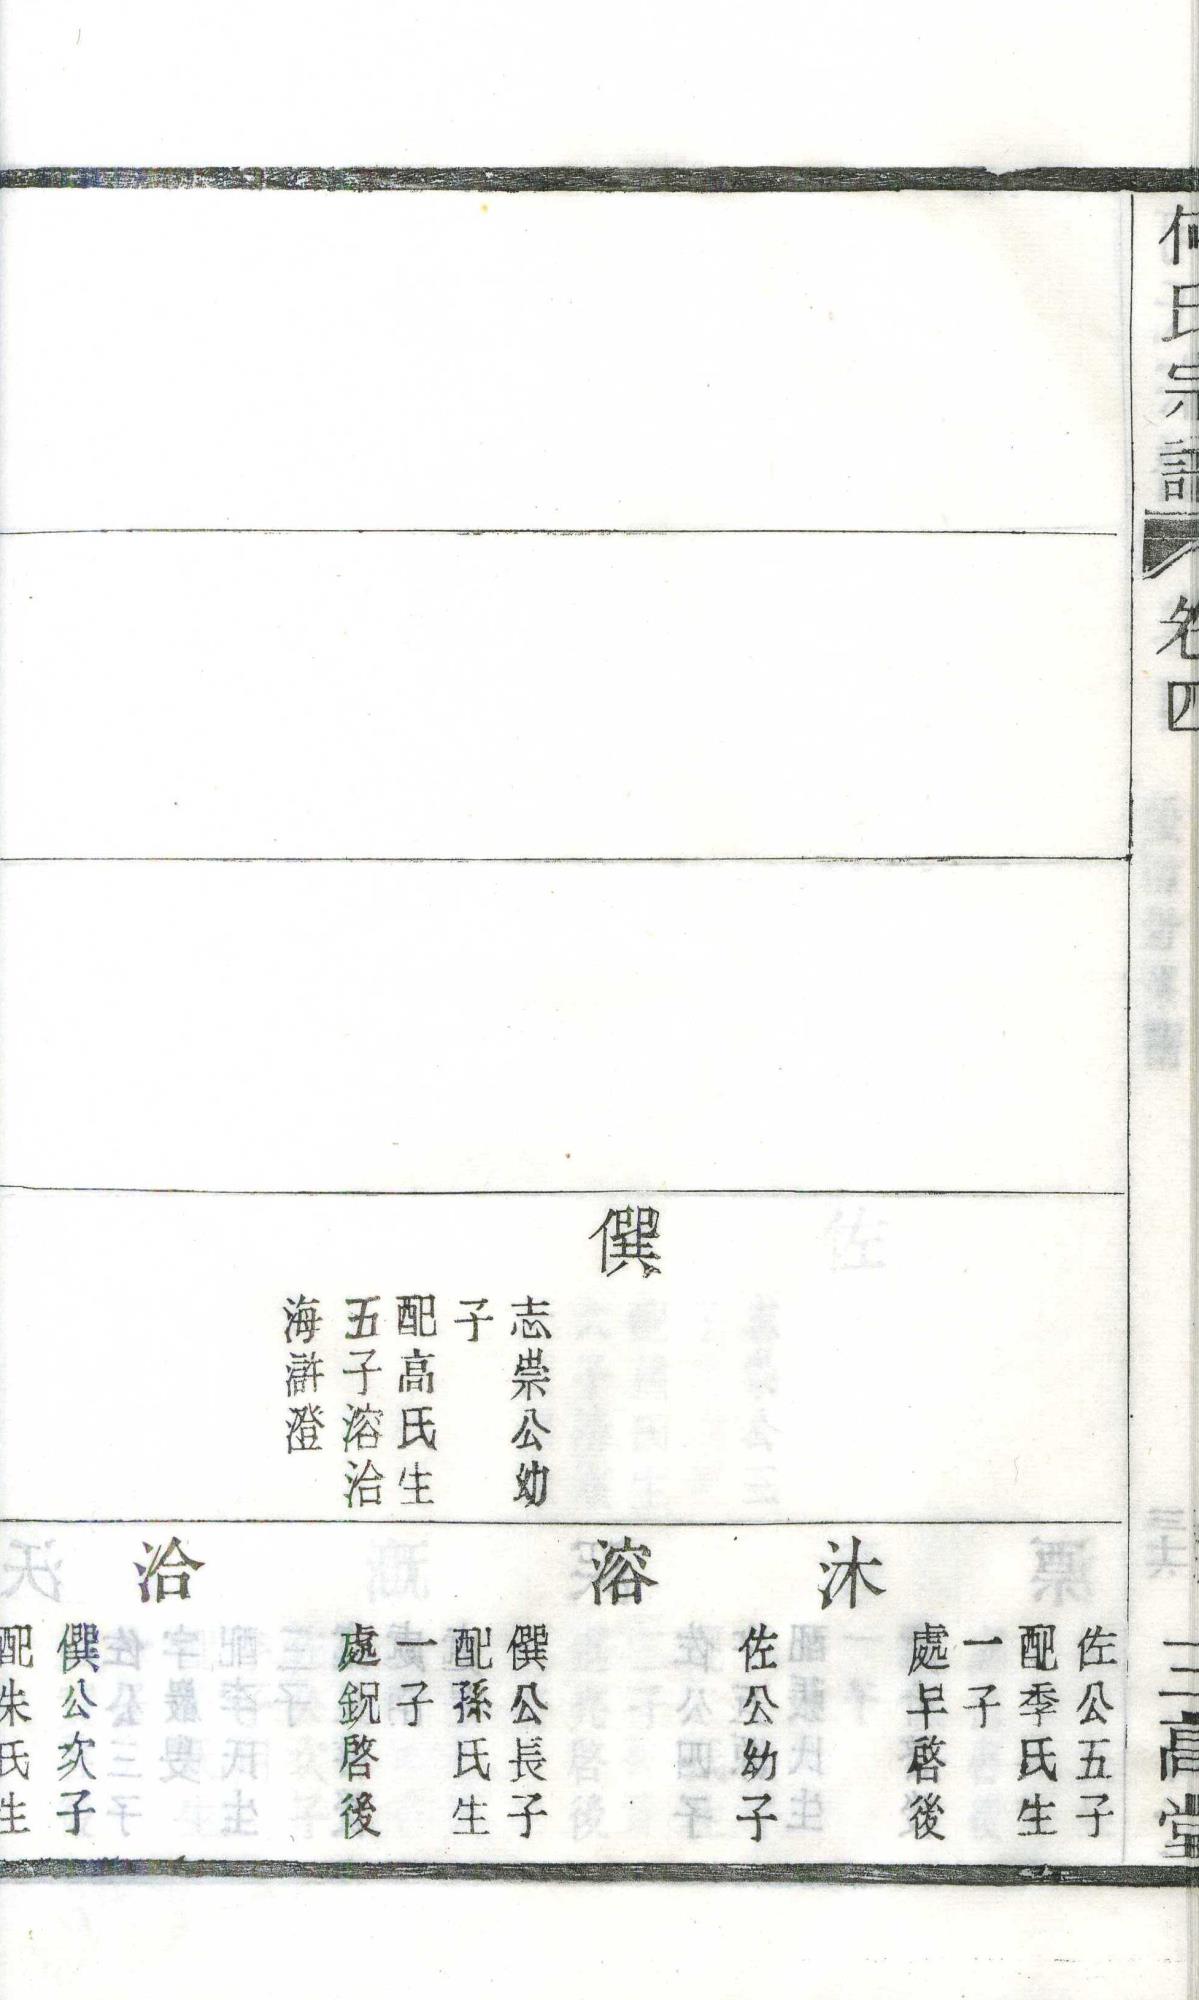 何氏宗譜
卷四
三高堂
僎
志崇公幼
子
配高氏生
五子溶洽
海滸澄
佐公五子
配季氏生
一子
處早啓後
沐
佐公幼子
溶
僎公長子
配孫氏生
一子
處鋭啓後
洽
僎公次子
配朱氏生